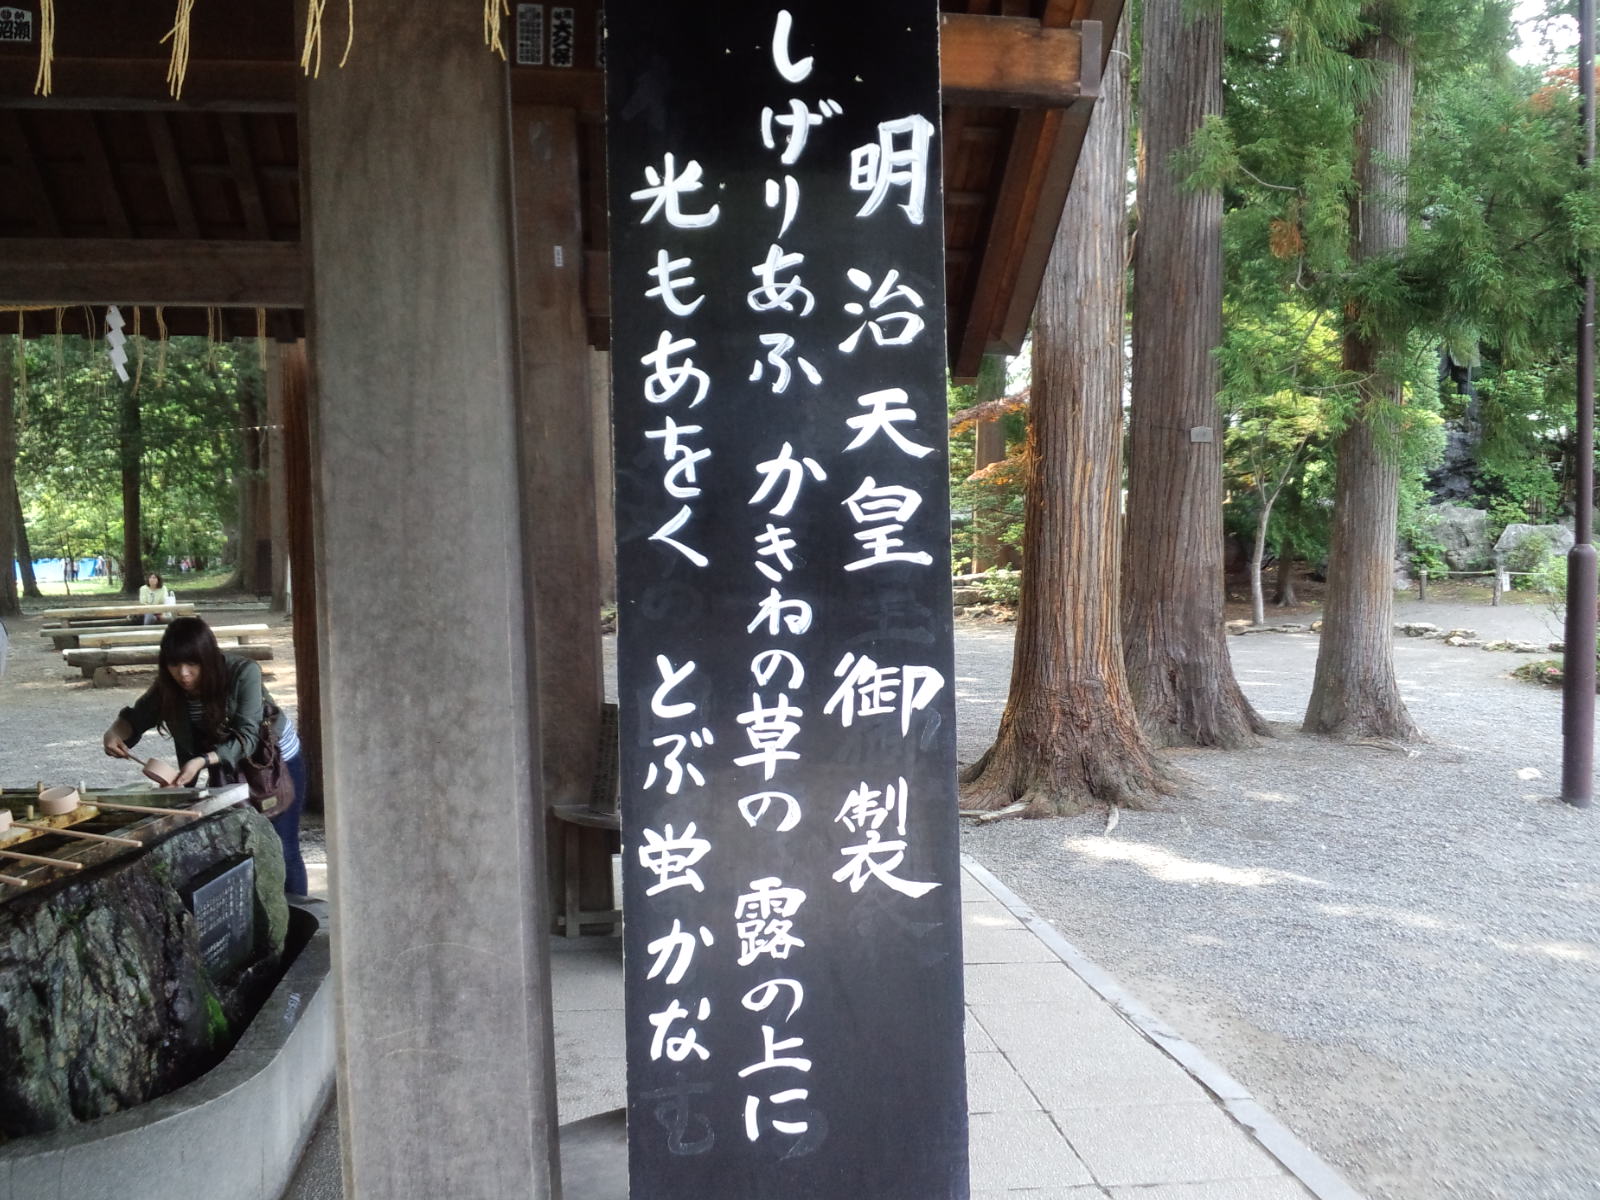 明治天皇御製
しげりあふ かきねの草の 露の上に
光もあをく とぶ蛍かな